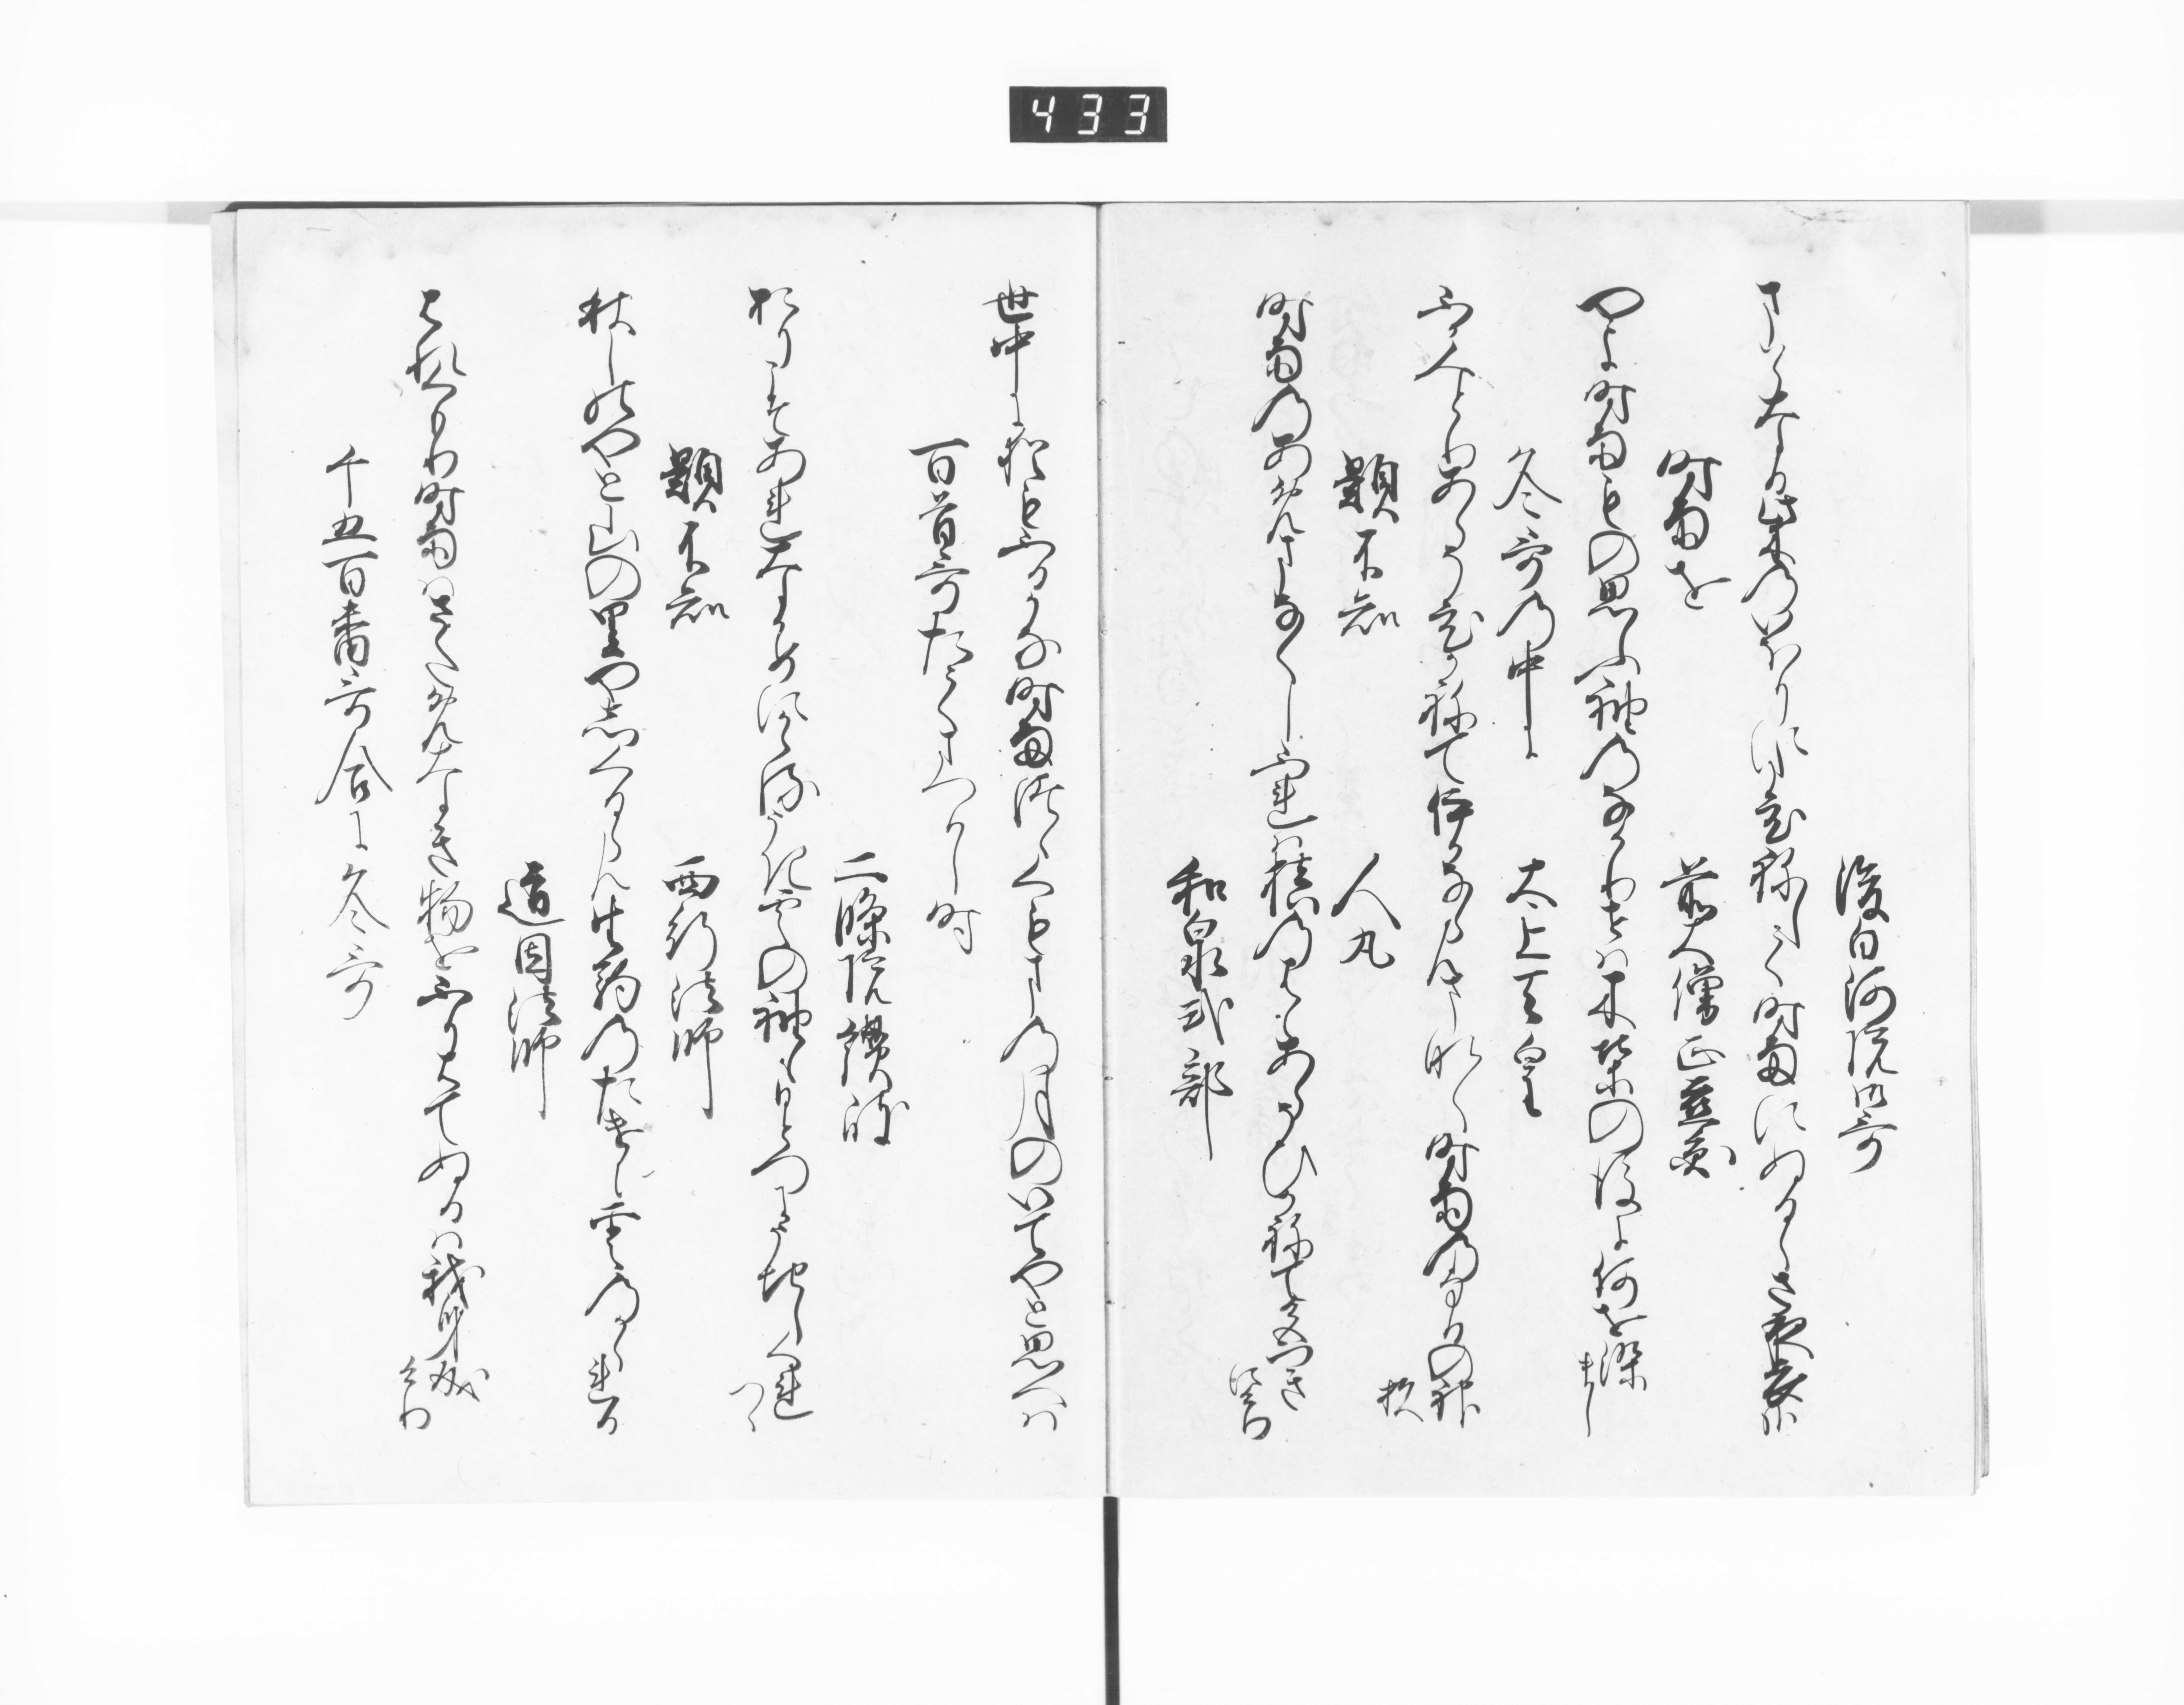 後白河院御哥
まはらなる柴のいほりに旅ねして時雨にぬるゝさ夜衣哉
時雨を　前大僧正慈円
やよ時雨もの思ふ袖のなかりせは木葉の後に何を染まし
冬哥の中に　太上天皇
ふかみとりあらそひかねていかならんまなく時雨のふるの神杉
題不知　人丸
時雨のあめまなくしふれは槙のはもあらそひかねて色つきにけり
和泉式部
世中に猶もふるかな時雨つゝくもまの月のいてやと思へは
百首哥たてまつりし時
二條院讃岐
おりこそあれなかめにかゝるうき雲の袖もひとつにうちしくれつゝ
題不知　西行法師
秋しのやと山の里やしくるらん生駒のたけに雲のかゝれる
道因法師
はれくもり時雨はさためなき物をふりはてぬるは我身成けり
千五百番哥合に冬哥
433